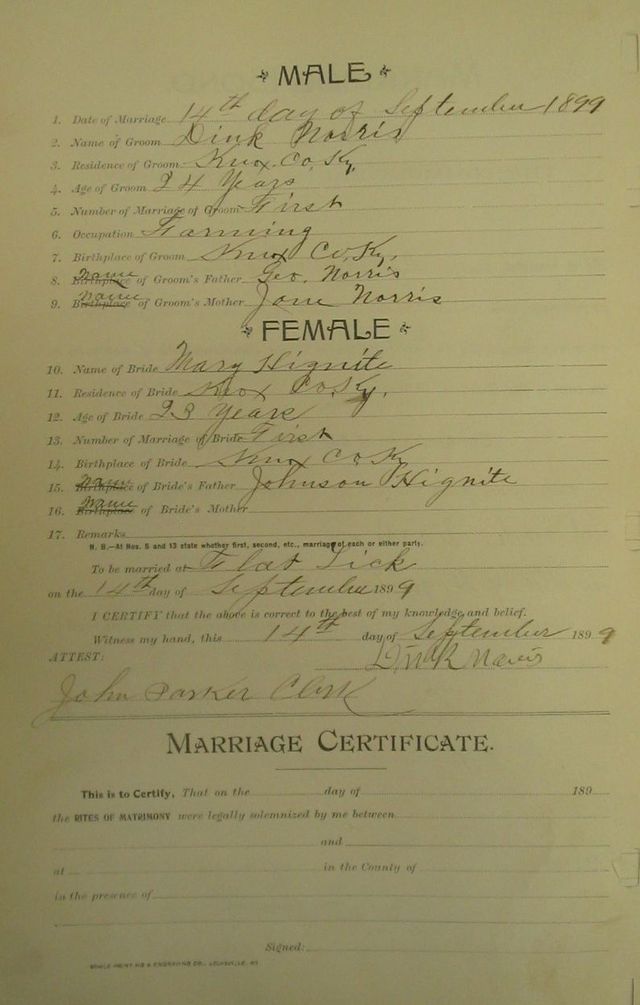 MALE
1. Date of Marriage 14th day of September 1899
2. Name of Groom Dink Norris
3. Residence of Groom Knox Co, Ky,
4. Age of Groom 24 Years
5. Number of Marriage of Groom First
6. Occupation Farming
7. Birthplace of Groom Knox Co. Ky.
8. Birthplace Name of Groom's Father Geo. Norris
9. Birthplace Name of Groom's Mother Jane Norris
FEMALE
10. Name of Bride Mary Hignite
11. Residence of Bride Knox Co. Ky.
12. Age of Bride 23 Years
13. Number of Marriage of Bride First
14. Birthplace of Bride Knox Co Ky
15. Birthplace Name of Bride's Father Johnson Hignite
16. Birthplace Name of Bride's Mother
17. Remarks
N. B.—At Nos. 5 and 13 state whether first, second, etc., marriage of each or either party.
To be married at Flat Lick
on the 14th day of September 1899
I CERTIFY that the above is correct to the best of my knowledge and belief.
Witness my hand, this 14th day of September 1899
ATTEST: Dink Norris
John Parker Clerk
MARRIAGE CERTIFICATE.
This is to Certify, That on the day of 189
the RITES OF MATRIMONY were legally solemnized by me between
and
at in the County of
in the presence of
Signed:
PRINTING & ENGRAVING CO., LOUISVILLE, KY.